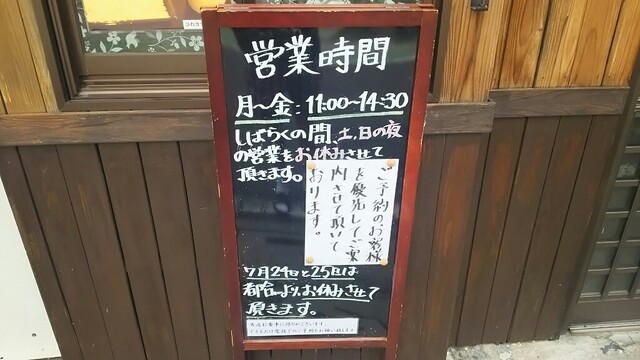 営業時間
月～金：11:00～14:30
しばらくの間、土,日の夜
の営業をお休みさせて
頂きます。
ご予約のお客様
を優先してご案
内させて頂いて
おります。
7月24日と25日は
都合によりお休みさせて
頂きます。